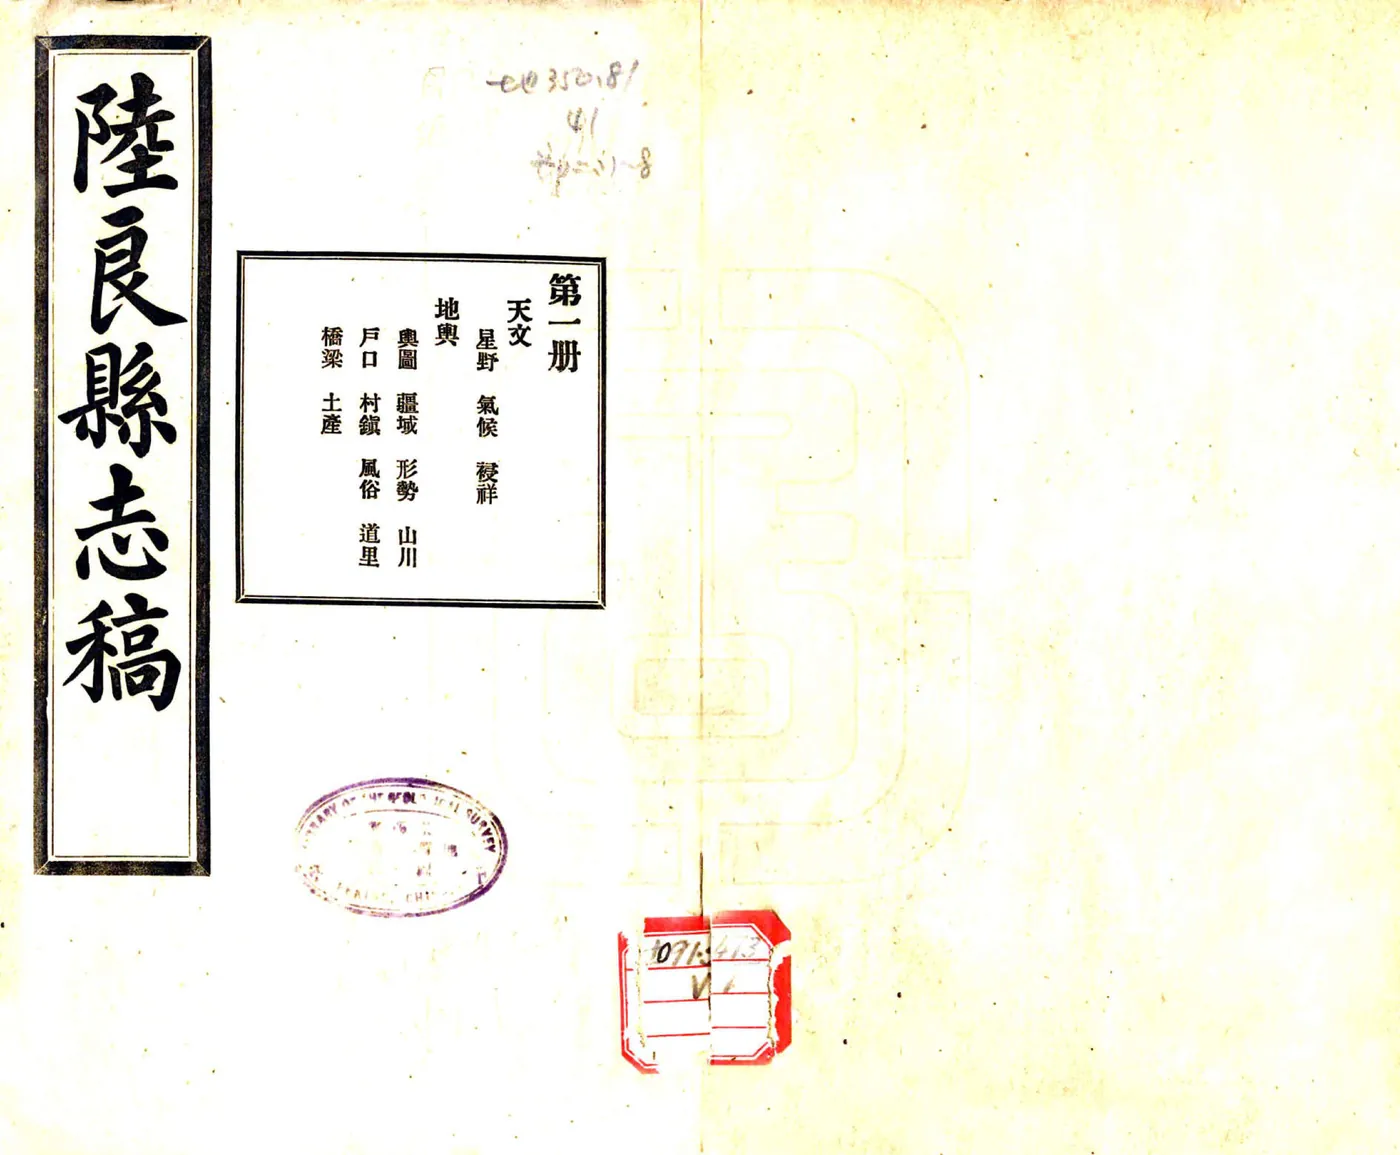 陸良縣志稿
第一册
天文
星野 氣候 祲祥
地輿
輿圖 疆域 形勢 山川
戶口 村鎭 風俗 道里
橋梁 土產
350.81
41
LIBRARY OF THE GEOLOGICAL SURVEY
V.1